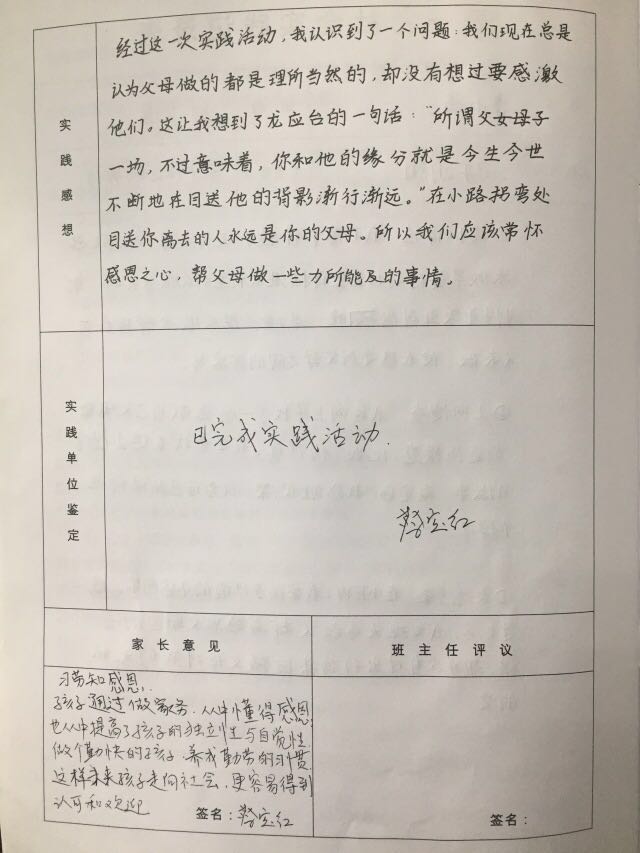 实践感想
经过这一次实践活动，我认识到了一个问题：我们现在总是
认为父母做的都是理所当然的，却没有想过要感激
他们。这让我想到了龙应台的一句话：“所谓父女母子
一场，不过意味着，你和他的缘分就是今生今世
不断地在目送他的背影渐行渐远。”在小路拐弯处
目送你离去的人永远是你的父母。所以我们应该常怀
感恩之心，帮父母做一些力所能及的事情。
实践单位鉴定
已完成实践活动.
家长意见
班主任评议
习劳知感恩，
孩子通过做家务，从中懂得感恩
也从中提高了孩子的独立性与自觉性
做个勤快的孩子，养成勤劳的习惯
这样未来孩子走向社会，更容易得到
认可和欢迎
签名：
签名：